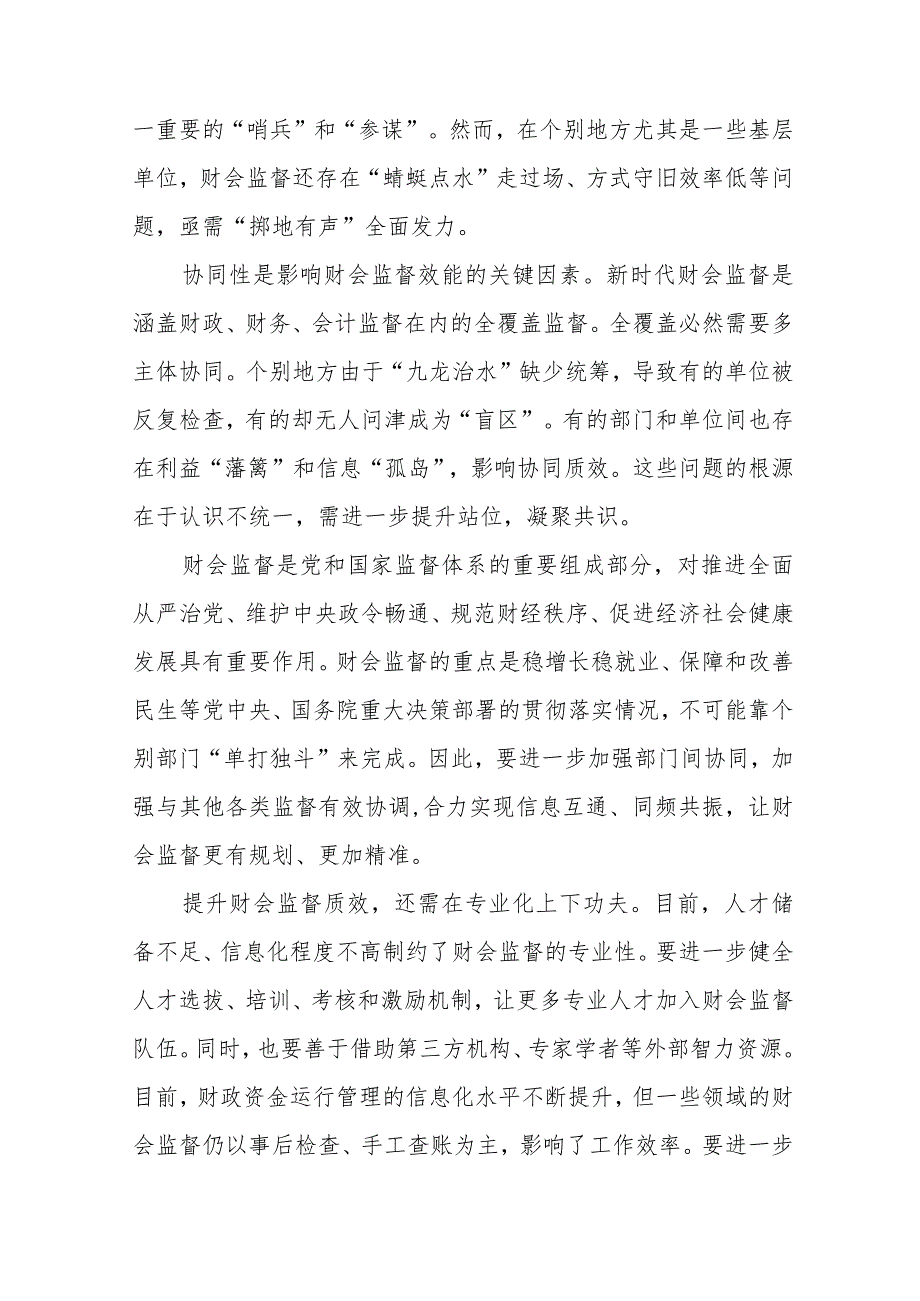 一重要的“哨兵”和“参谋”。然而，在个别地方尤其是一些基层
单位，财会监督还存在“蜻蜓点水”走过场、方式守旧效率低等问
题，亟需“掷地有声”全面发力。
协同性是影响财会监督效能的关键因素。新时代财会监督是
涵盖财政、财务、会计监督在内的全覆盖监督。全覆盖必然需要多
主体协同。个别地方由于“九龙治水”缺少统筹，导致有的单位被
反复检查，有的却无人问津成为“盲区”。有的部门和单位间也存
在利益“藩篱”和信息“孤岛”，影响协同质效。这些问题的根源
在于认识不统一，需进一步提升站位，凝聚共识。
财会监督是党和国家监督体系的重要组成部分，对推进全面
从严治党、维护中央政令畅通、规范财经秩序、促进经济社会健康
发展具有重要作用。财会监督的重点是稳增长稳就业、保障和改善
民生等党中央、国务院重大决策部署的贯彻落实情况，不可能靠个
别部门“单打独斗”来完成。因此，要进一步加强部门间协同，加
强与其他各类监督有效协调,合力实现信息互通、同频共振，让财
会监督更有规划、更加精准。
提升财会监督质效，还需在专业化上下功夫。目前，人才储
备不足、信息化程度不高制约了财会监督的专业性。要进一步健全
人才选拔、培训、考核和激励机制，让更多专业人才加入财会监督
队伍。同时，也要善于借助第三方机构、专家学者等外部智力资源。
目前，财政资金运行管理的信息化水平不断提升，但一些领域的财
会监督仍以事后检查、手工查账为主，影响了工作效率。要进一步